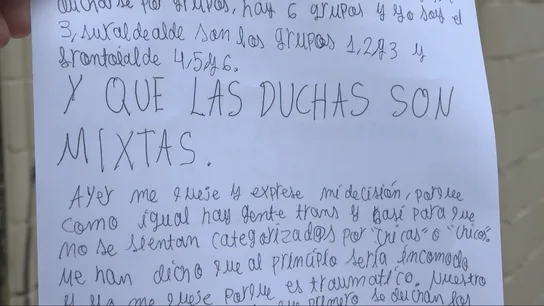 ducharse por grupos, hay 6 grupos y yo soy el
3, surtaldealde son los grupos 1,2y3 y
frontoialde 4,5y6.
Y QUE LAS DUCHAS SON
MIXTAS.
Ayer me queje y exprese mi decisión, porque
como igual hay gente trans y para que
no se sientan categorizad@s por "chicas" o "chicos".
Me han dicho que al principio sería incomodo
me queje porque es traumatico. Nuestro
primero se duchan los